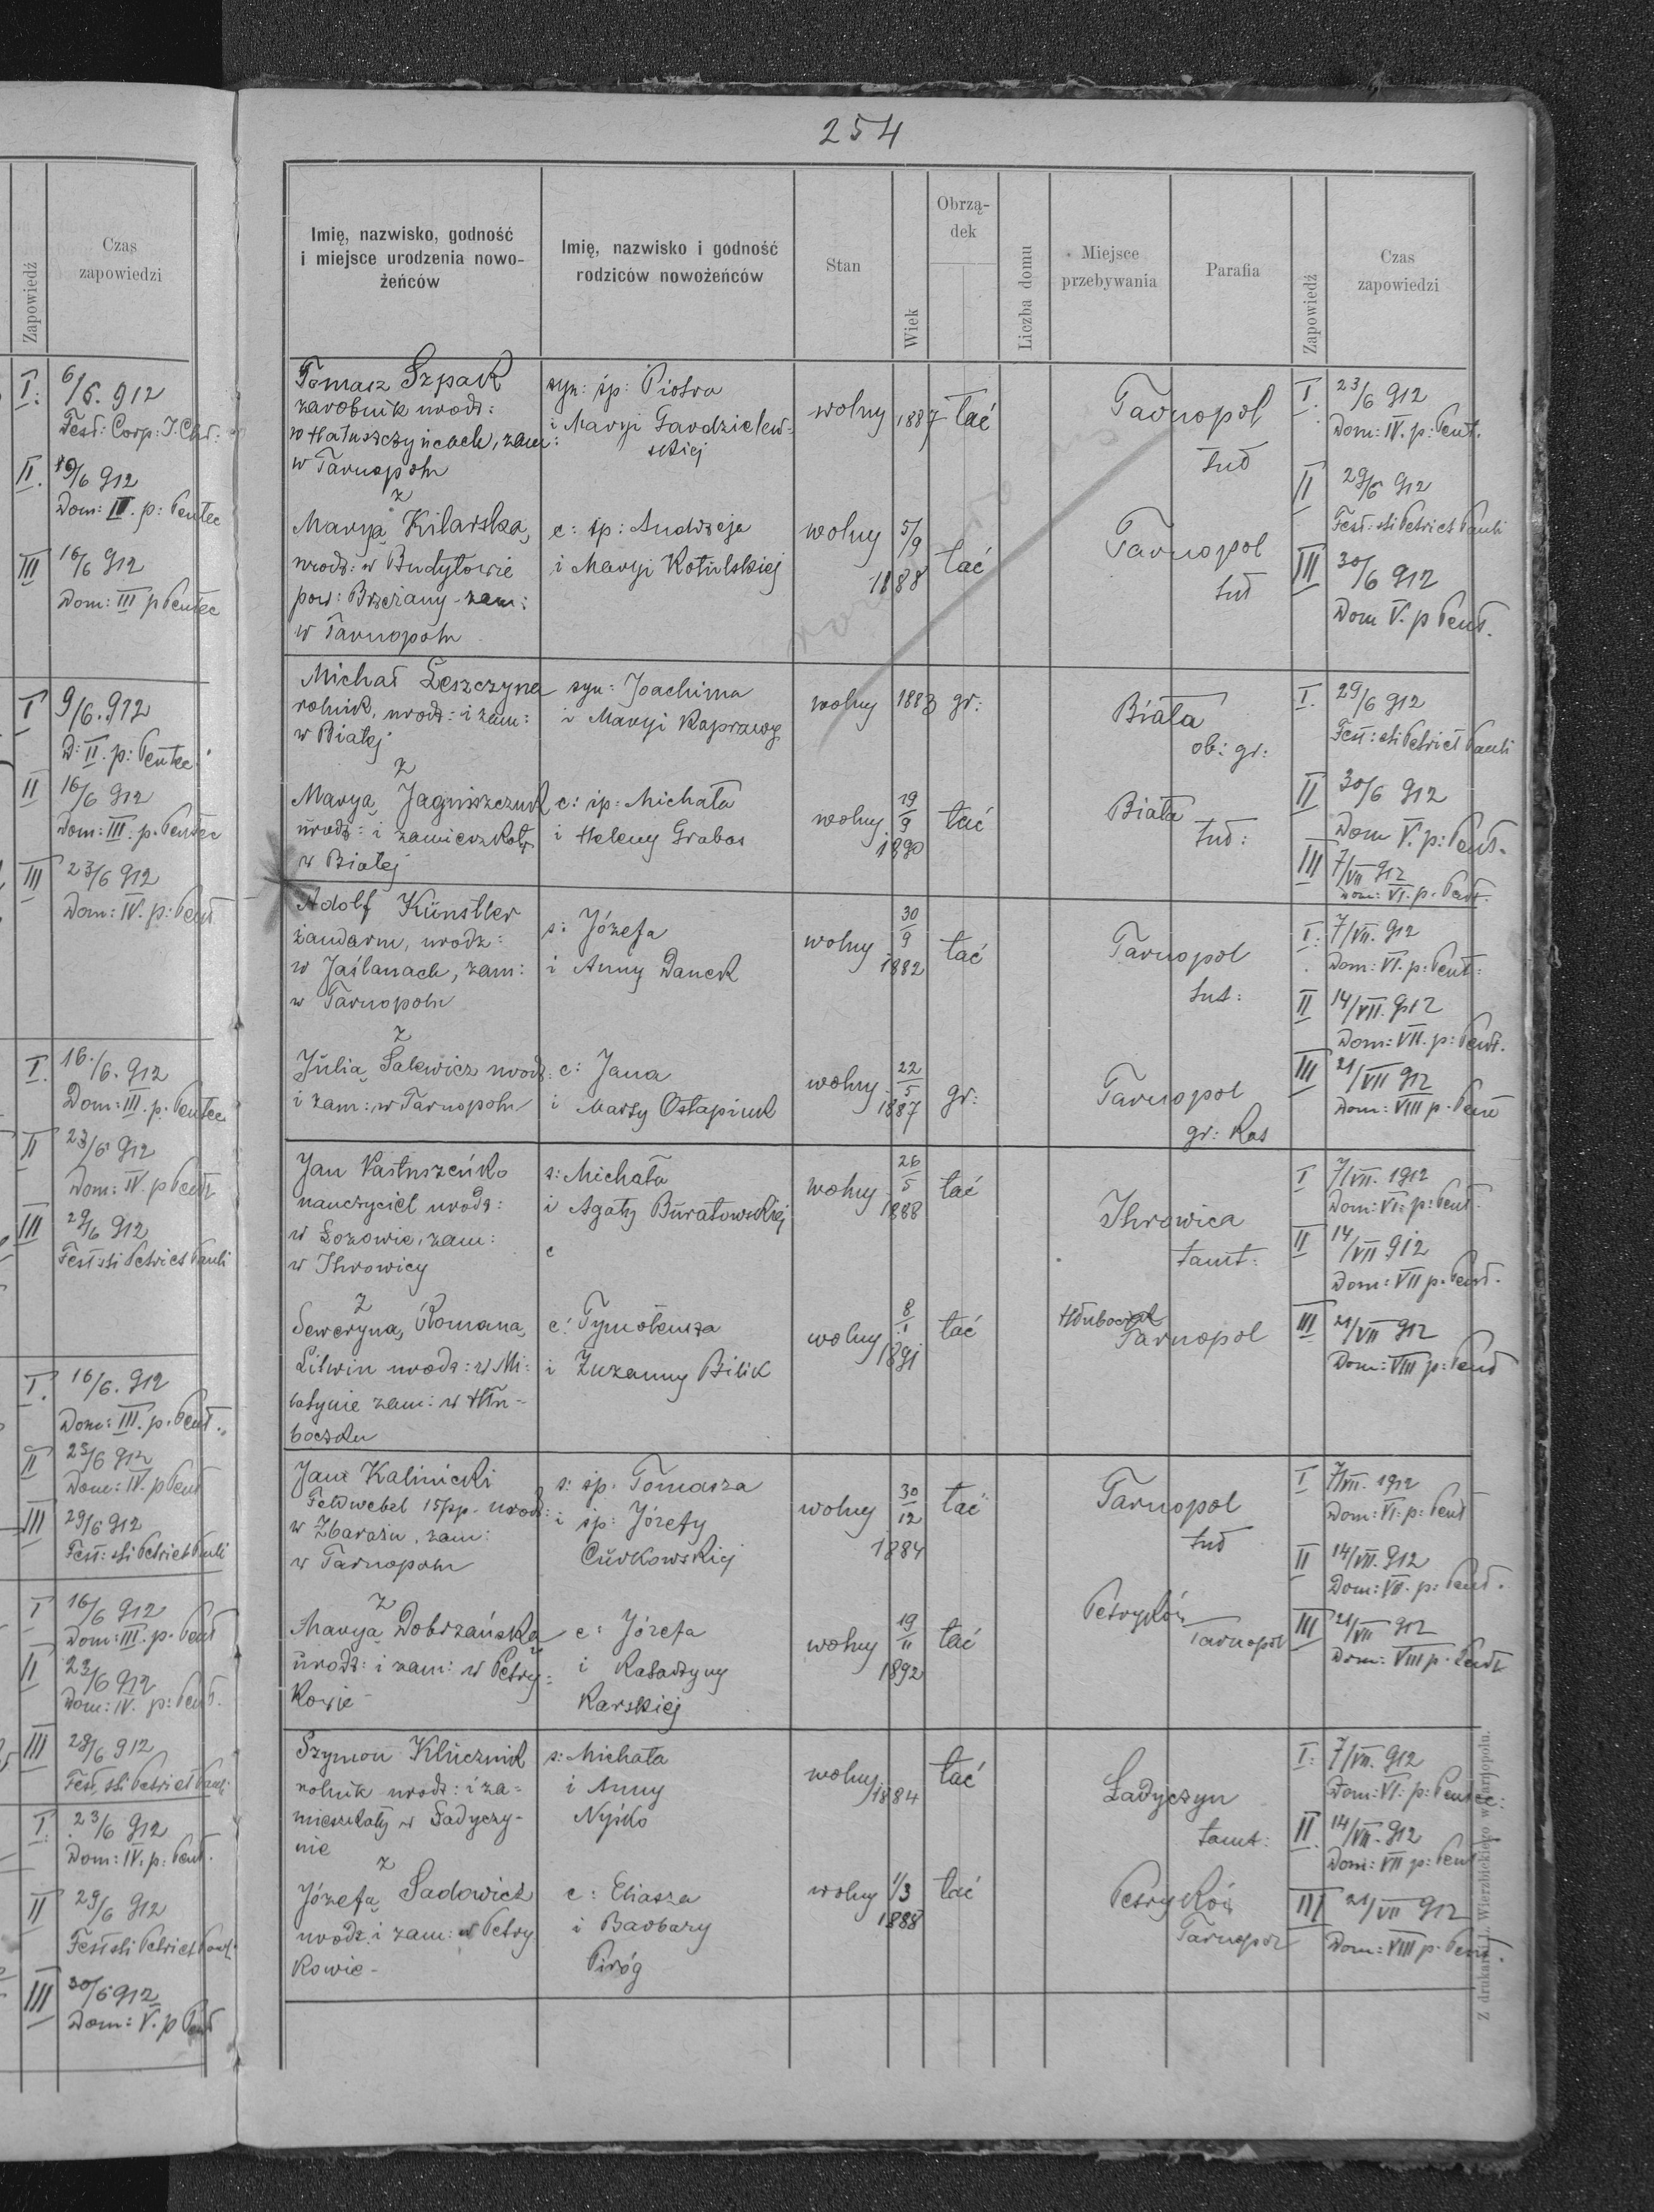 Zapowiedź
Czas
zapowiedzi
I: 6/6. 912
Fest: Corp: J. Chr:
II. 9/6 912
Dom: II. p: Pentec
III 16/6 912
Dom: III p Pentec
I 9/6. 912
D: II. p: Pentec:
II 16/6 912
Dom: III. p. Pentec
III 23/6 912
Dom: IV. p: Pent
I. 16./6. 912
Dom: III. p: Pentec
II 23/6 912
Dom: IV. p Pent
III 29/6 912
Fest: sti Petri et Pauli
I. 16/6. 912
Dom: III. p. Pent.
II 23/6 912
Dom: IV. p Pent
III 29/6 912
Fest: sti Petri et Pauli
I 16/6 912
Dom: III. p. Pent
II 23/6 912
Dom: IV. p: Pent.
III 29/6 912
Fest. sti Petri et Pauli
I. 23/6 912
Dom: IV. p: Pent.
II 29/6 912
Fest sti Petri et Pauli
III 30/6 912
Dom: V. p Pent
254
Imię, nazwisko, godność
i miejsce urodzenia nowo-
żeńców
Imię, nazwisko i godność
rodziców nowożeńców
Stan
Wiek
Obrzą-
dek
Liczba domu
Miejsce
przebywania
Parafia
Zapowiedź
Czas
zapowiedzi
Tomasz Szpak
zarobnik urodz:
w Hałuszczyńcach, zam:
w Tarnopolu
syn: śp: Piotra
i Maryi Gardzielew-
skiej
wolny 1887 łać
Tarnopol
tud
I. 23/6 912
Dom: IV. p: Pent.
II 29/6 912
Fest: sti Petri et Pauli
III 30/6 912
Dom V. p Pent.
z
Maryą Kilarską,
urodz: w Budyłowie
pow: Brzeżany - zam:
w Tarnopolu
c: śp: Andrzeja
i Maryi Kotulskiej
wolny 5/9 1888 łać
Tarnopol
tud
Michał Leszczyna
rolnik, urodz: i zam:
w Białej
syn: Joachima
i Maryi Kaprawy
wolny 1883 gr:
Biała
ob: gr:
I. 29/6 912
Fest: sti Petri et Pauli
II 30/6 912
Dom V. p: Pent.
III 7/VII 912
Dom: VI. p. Pent.
z
Maryą Jagniszczuk
urodz: i zamieszkałą
w Białej
c: śp: Michała
i Heleny Grabas
wolny 19/9 1890 łać
Biała
tud:
Adolf Künstler
żandarm, urodz:
w Jaślanach, zam:
w Tarnopolu
s: Józefa
i Anny Danek
wolny 30/9 1882 łać
Tarnopol
tut:
I: 7/VII. 912
Dom: VI. p: Pent:
II 14/VII. 912
Dom: VII. p: Pent.
III 21/VII 912
Dom: VIII p. Pent
z
Julią Salewicz urodz:
i zam: w Tarnopolu
c: Jana
i Marty Ostapiuk
wolny 22/5 1887 gr:
Tarnopol
gr: kat
Jan Pastuszeńko
nauczyciel urodz:
w Łozowie, zam:
w Ihrowicy
s: Michała
i Agaty Buratowskiej
wolny 26/5 1888 łać
Ihrowica
tamt:
I 7/VII. 1912
Dom: VI: p: Pent.
II 14/VII 912
Dom: VII p. Pent.
III 21/VII 912
Dom: VIII p: Pent
z
Seweryną, Romaną,
Litwin urodz: w Mi:
łatynie zam: w Hłu-
boczku
c: Tymoteusza
i Zuzanny Bilik
wolny 8/1 1891 łać
Hłuboczek
Tarnopol
Jan Kalinicki
Feldwebel 15pp. urodz:
w Zbarażu, zam:
w Tarnopolu
s: śp. Tomasza
i śp: Józefy
Curkowskiej
wolny 30/12 1884 łać
Tarnopol
tud
I 7/VII. 1912
Dom: VI: p: Pent
II 14/VII. 912
Dom: VII. p: Pent.
III 21/VII 912
Dom: VIII p. Pent
z
Maryą Dobrzańską
urodz: i zam: w Petry=
kowie
c: Józefa
i Katarzyny
Karskiej
wolny 19/11 1892 łać
Petryków
Tarnopol
Szymon Klucznik
rolnik urodz: i za=
mieszkały w Ładyczy-
nie
s: Michała
i Anny
Nyśko
wolny 1884 łać
Ładyczyn
tamt:
I: 7/VII. 912
Dom: VI: p: Pentec:
II. 14/VII. 912
Dom: VII p: Pent
III 21/VII 912
Dom: VIII p. Pent.
z
Józefą Sadowicz
urodz: i zam: w Petry
kowie -
c: Eliasza
i Barbary
Piróg
wolny 1/3 1888 łać
Petryków
Tarnopol
Z drukarni J. Wierzbickiego w Tarnopolu.